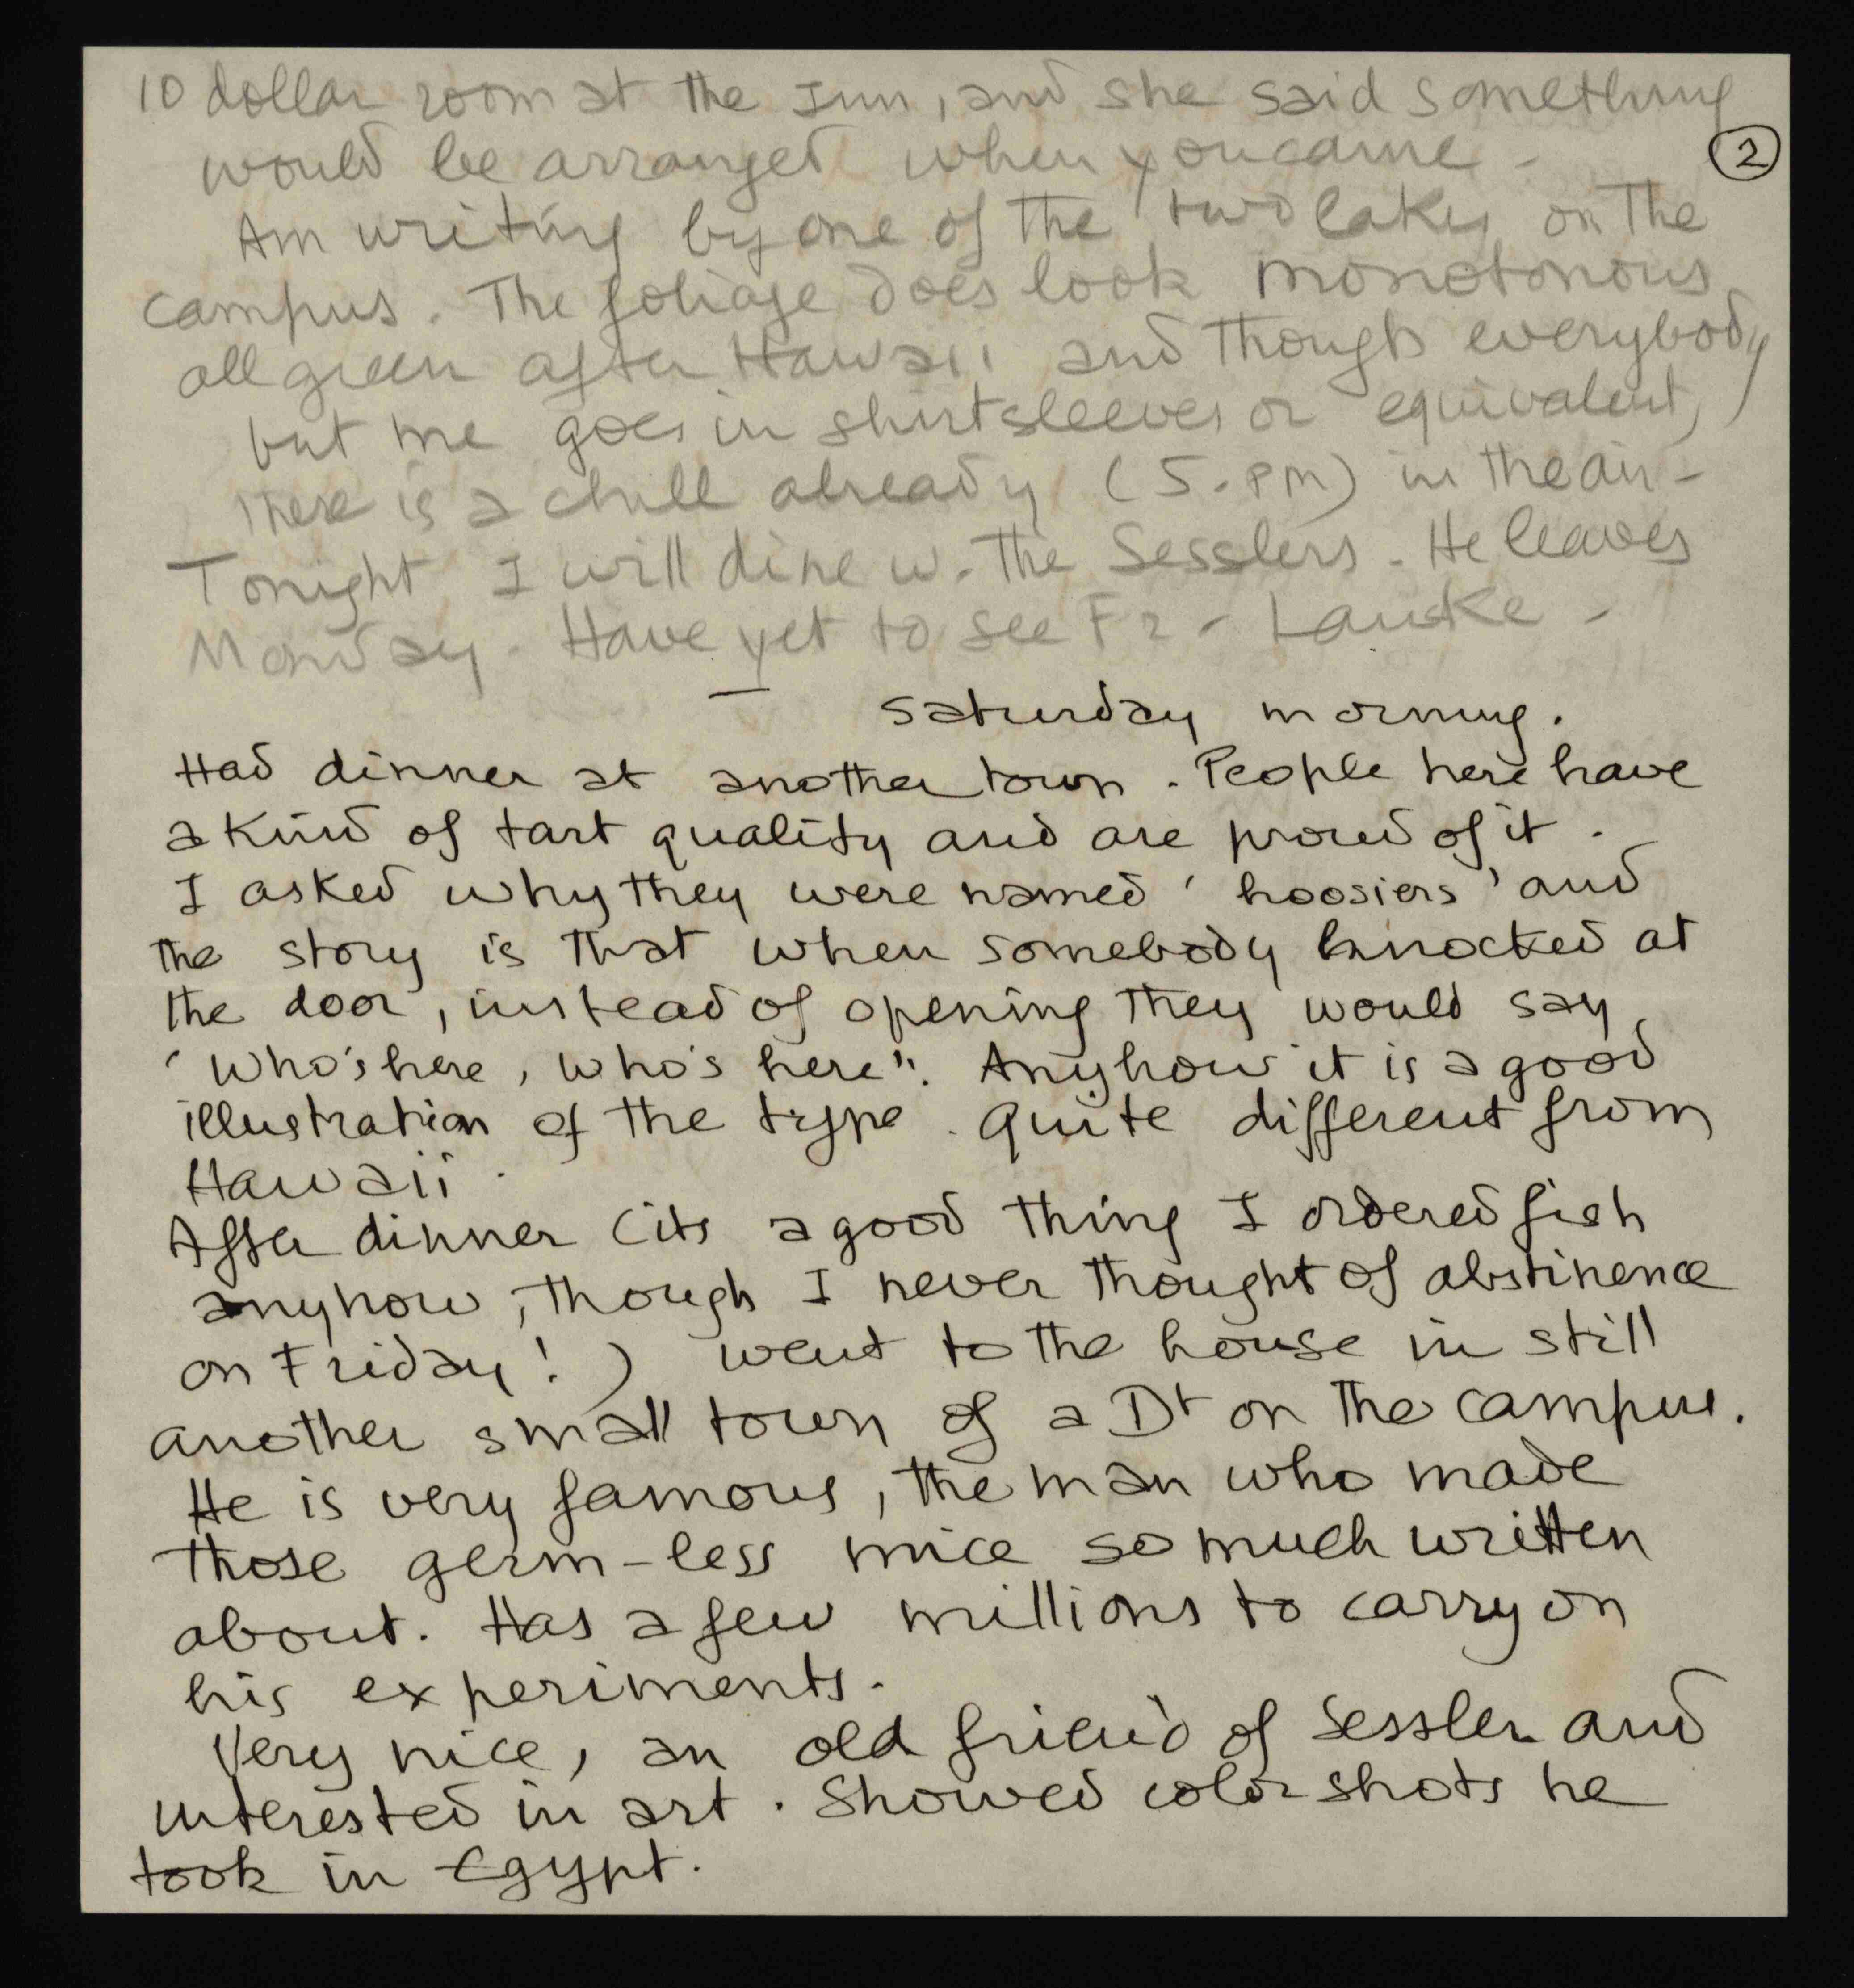 10 dollar room at the Inn, and she said something
would be arranged when you came -
②
Am writing by one of the two lakes on the
campus. The foliage does look monotonous
all green after Hawaii and though everybody
but me goes in shirtsleeves or equivalent,
there is a chill already (5. PM) in the air -
Tonight I will dine w. the Sesslers. He leaves
Monday. Have yet to see Fr. Lauke -
Saturday morning.
Had dinner at another town. People here have
a kind of tart quality and are proud of it.
I asked why they were named 'hoosiers' and
the story is that when somebody knocked at
the door, instead of opening they would say
'Who's here, who's here". Anyhow it is a good
illustration of the type. Quite different from
Hawaii.
After dinner (its a good thing I ordered fish
anyhow, though I never thought of abstinence
on Friday!) went to the house in still
another small town of a Dr on the campus.
He is very famous, the man who made
those germ-less mice so much written
about. Has a few millions to carry on
his experiments.
Very nice, an old friend of Sessler and
interested in art. Showed color shots he
took in Egypt.